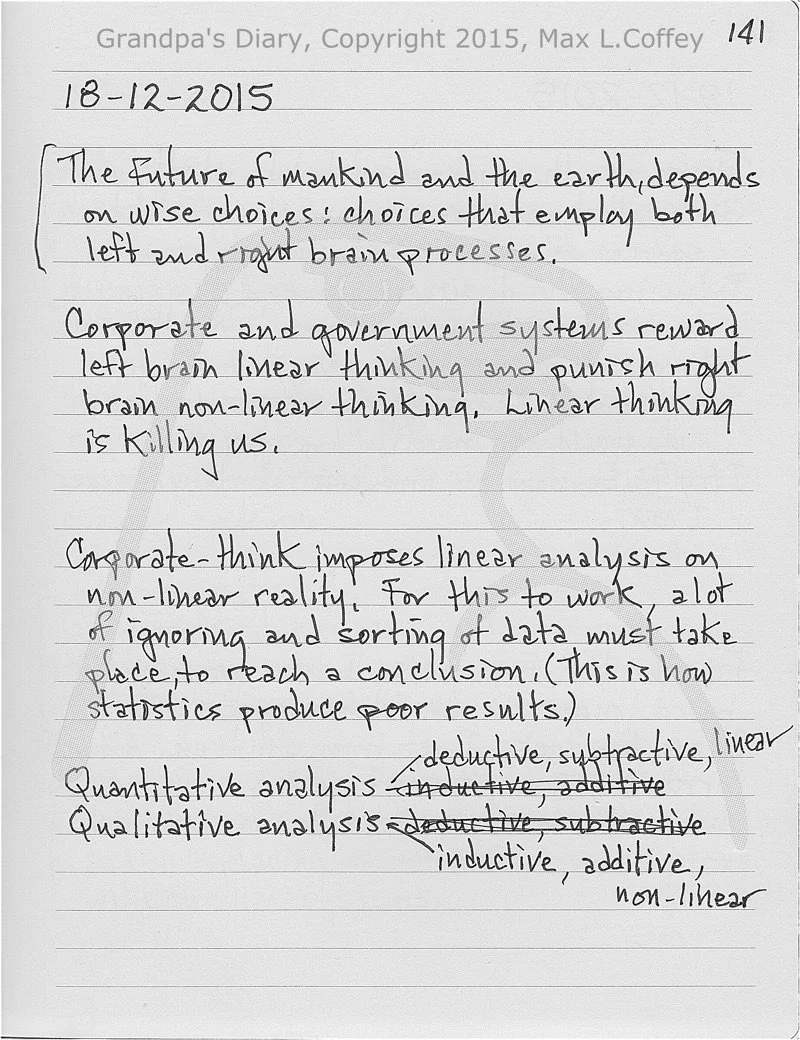 Grandpa's Diary, Copyright 2015, Max L.Coffey
141
18-12-2015
The Future of mankind and the earth, depends
on wise choices: choices that employ both
left and right brain processes.
Corporate and government systems reward
left brain linear thinking and punish right
brain non-linear thinking. Linear thinking
is killing us.
Corporate-think imposes linear analysis on
non-linear reality. For this to work, a lot
of ignoring and sorting of data must take
place, to reach a conclusion. (This is how
statistics produce poor results.)
deductive, subtractive, linear
Quantitative analysis - inductive, additive
Qualitative analysis - deductive, subtractive
inductive, additive,
non-linear